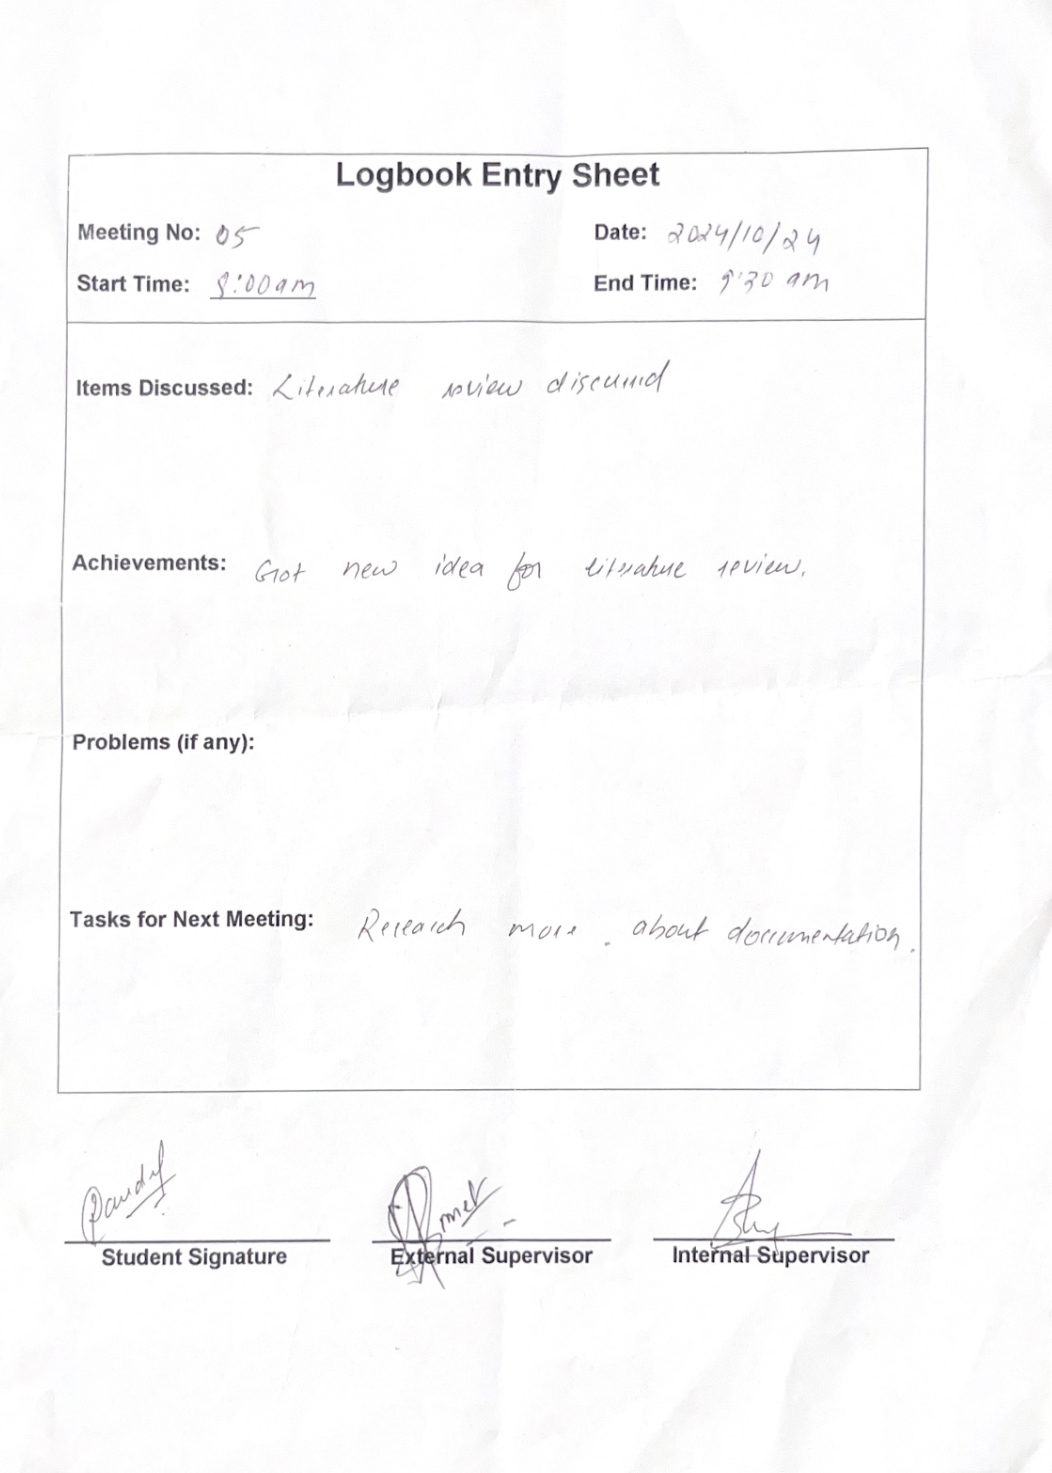 Logbook Entry Sheet
Meeting No: 05 Date: 2024/10/24
Start Time: 8:00am End Time: 9:30 am
Items Discussed: Literature review discussed
Achievements: Got new idea for literature review.
Problems (if any):
Tasks for Next Meeting: Research more . about documentation.
Student Signature External Supervisor Internal Supervisor